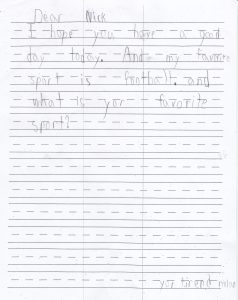 Dear Nick
I hope you have a good
day today. And my favorite
sport is football. and
what is yor favorite
sport?
yor friend